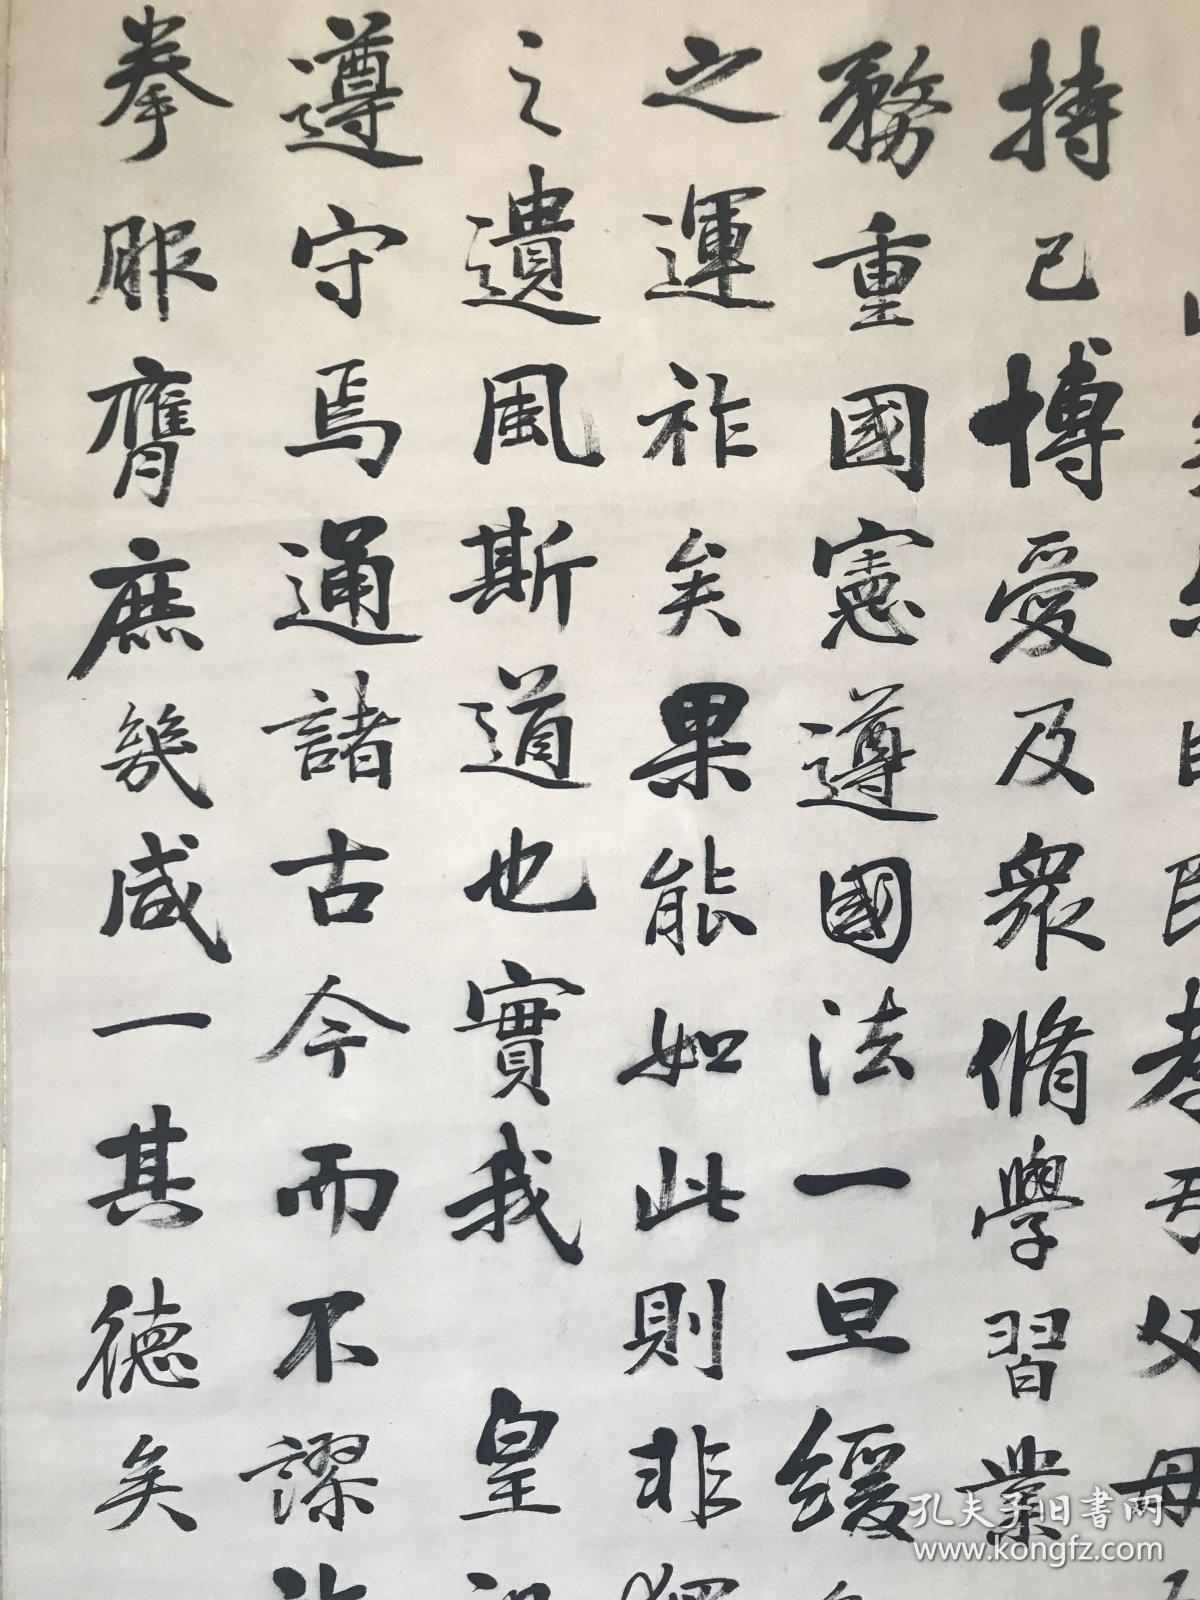 孝 父母
持己博愛及衆脩學習業
務重國憲遵國法一旦緩
之運祚矣果能如此則非
之遺風斯道也實我 皇
遵守焉通諸古今而不謬
拳服膺庶幾咸一其德矣
孔夫子旧书网
www.kongfz.com